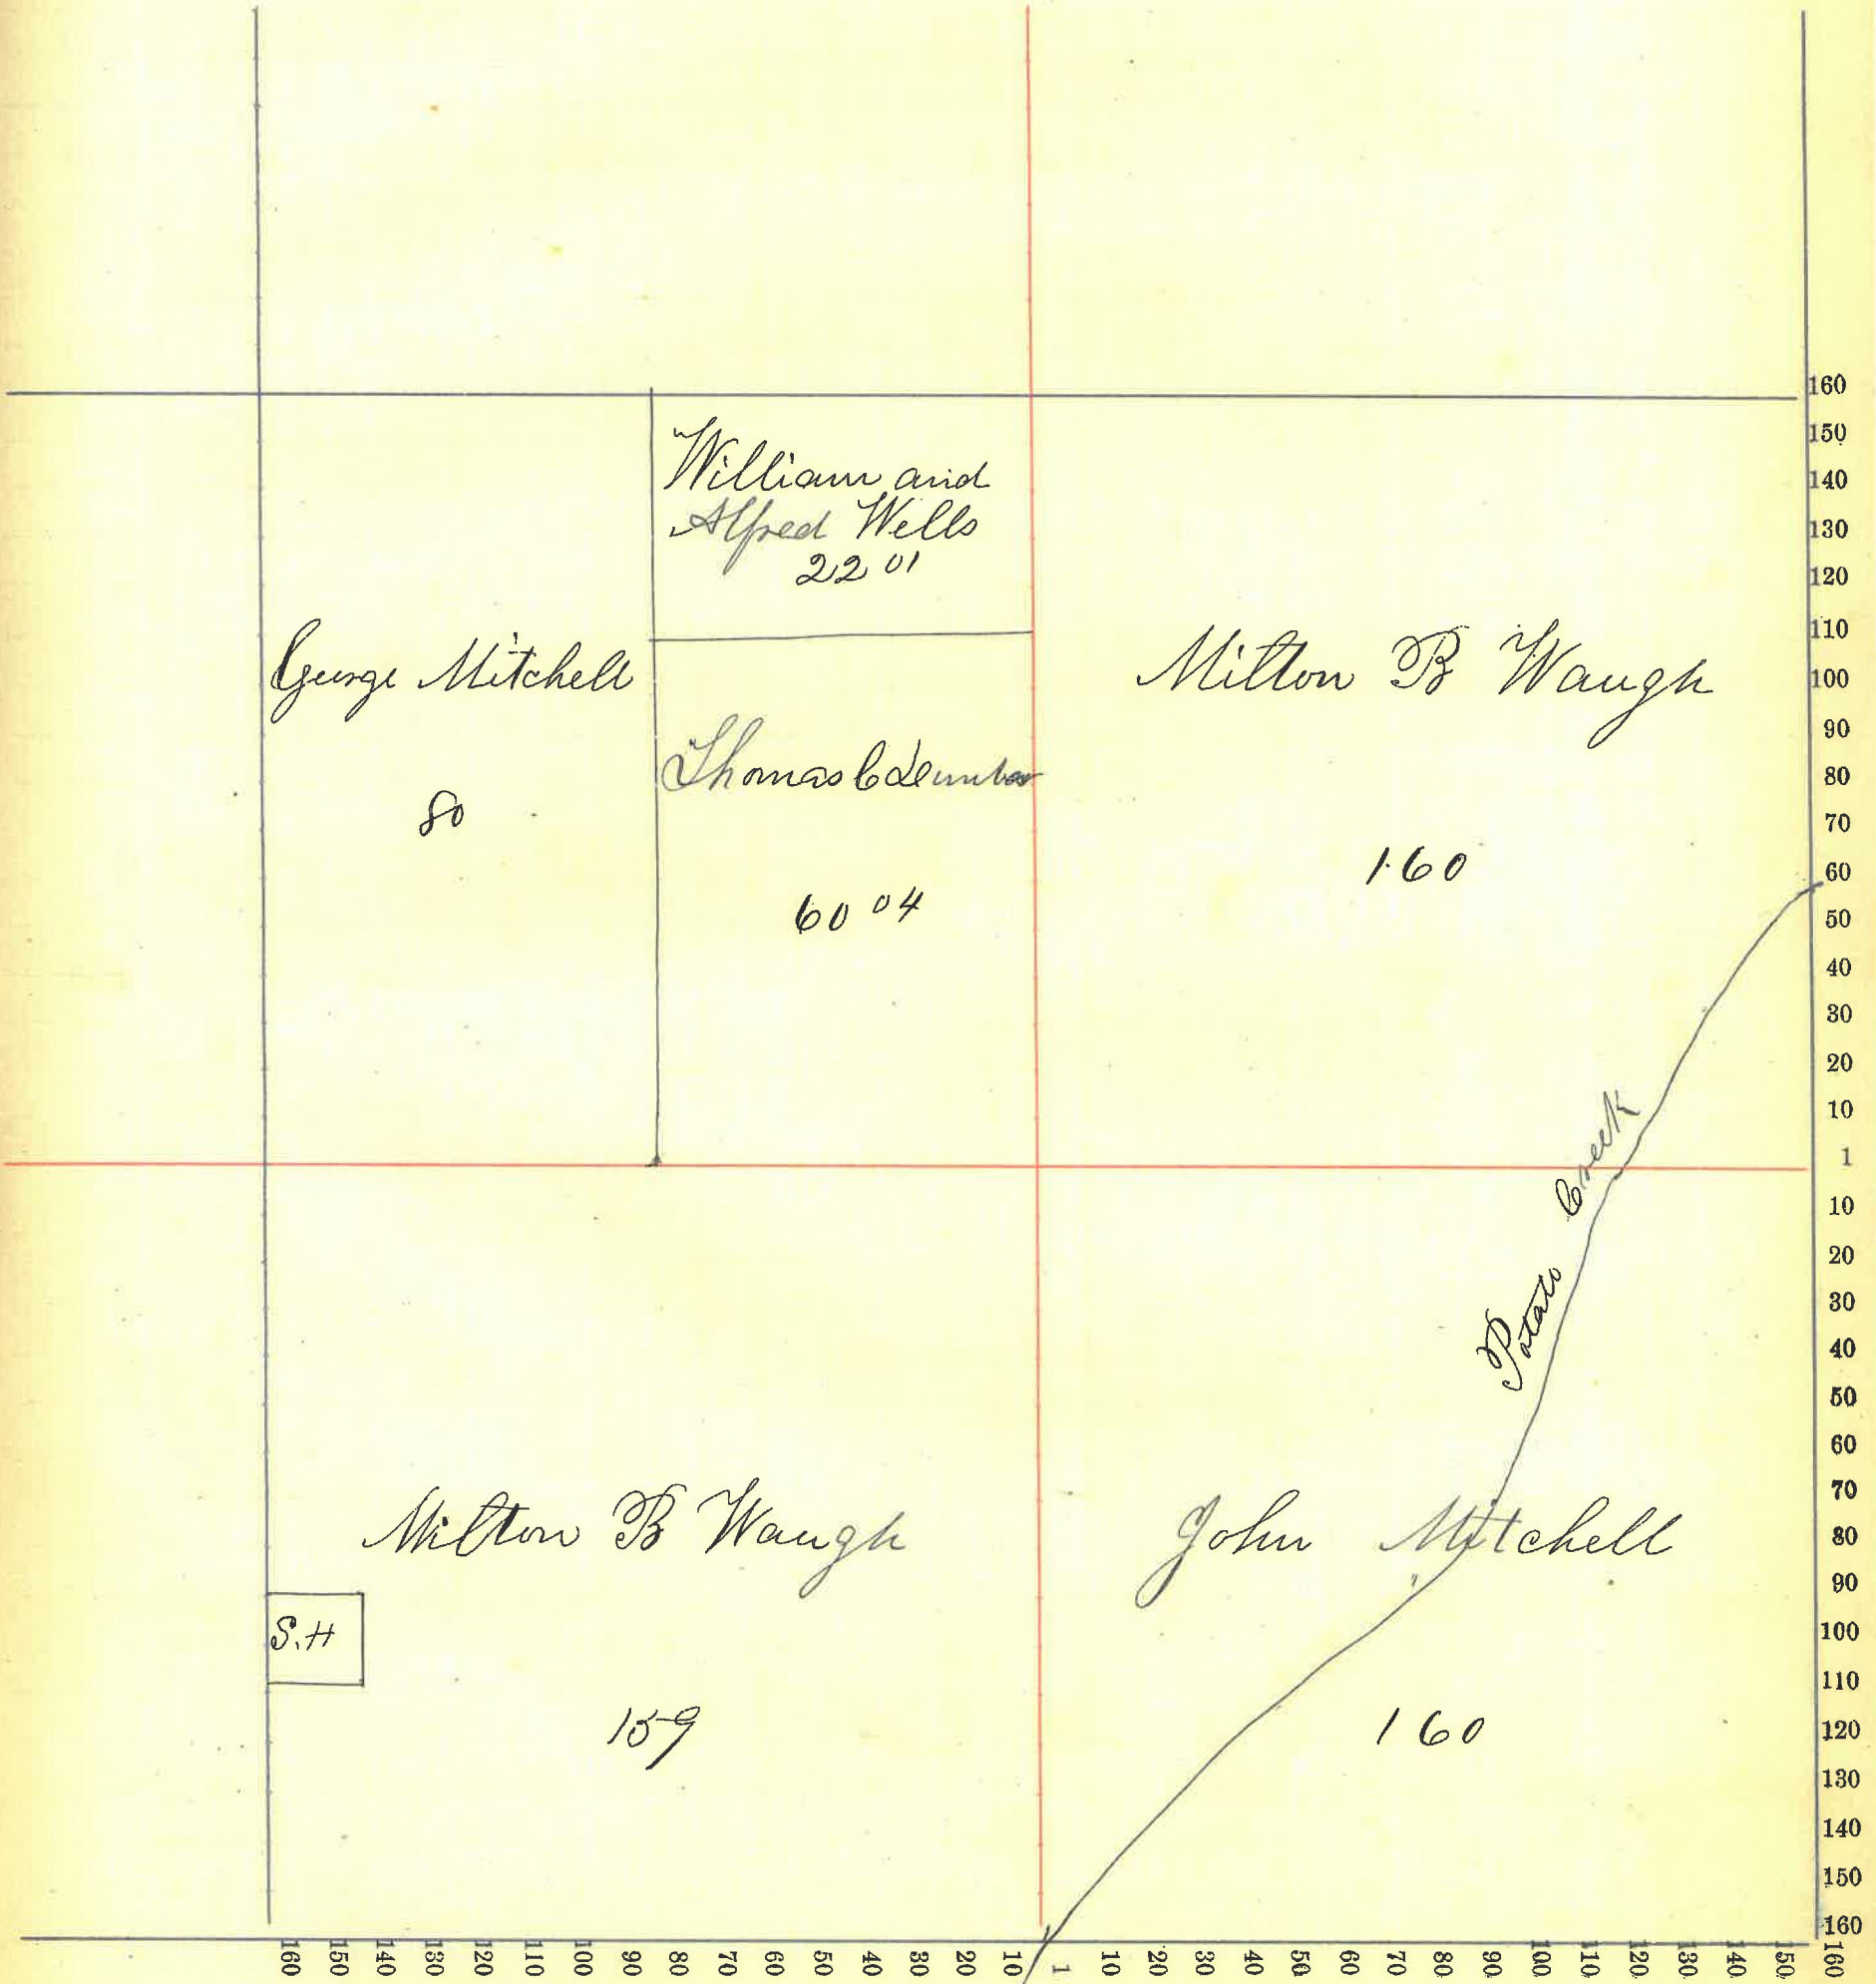 William and
Alfred Wells
22 01
George Mitchell
80
Thomas C
60 04
Milton B Waugh
160
Potato Creek
Milton B Waugh
S.H
159
John Mitchell
160
160
150
140
130
120
110
100
90
80
70
60
50
40
30
20
10
1
10
20
30
40
50
60
70
80
90
100
110
120
130
140
150
160
160 150 140 130 120 110 100 90 80 70 60 50 40 30 20 10 1 10 20 30 40 50 60 70 80 90 100 110 120 130 140 150 160